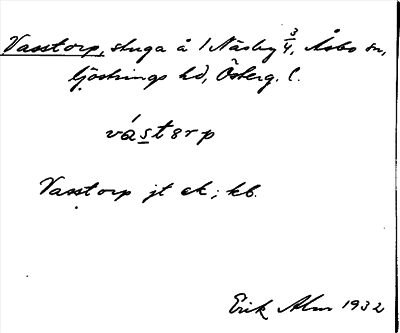 Vasstorp, stuga å 1 Näsby 3/4, Åsbo sn,
Göstrings hd, Österg. l.
vástərp
Vasstorp jt ek; kb.
Erik Alm 1932